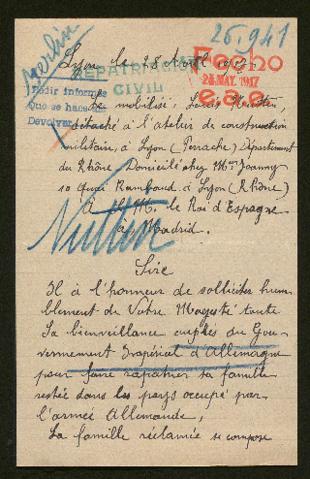 25.941
Berlin
Lyon le 28 Avril 1917
REPATRIACION
CIVIL
Fecho
23 MAY. 1917
Pedir informes
Que se haga
Devolver
Le mobilisé, Louis
détaché à l'atelier de construction
militaire, à Lyon (Perrache) Département
du Rhône Domicilié chez Mme Joanny
10 Quai Rambaud à Lyon (Rhône)
À S. M. le Roi d'Espagne
à Madrid.
Nuttin
Sire
Il à l'honneur de solliciter hum-
blement de Votre Majesté toute
Sa bienveillance auprès du Gou-
vernement Impérial d'Allemagne
pour faire rapatrier sa famille
restée dans les pays occupé par
l'armée Allemande,
La famille réclamée se compose